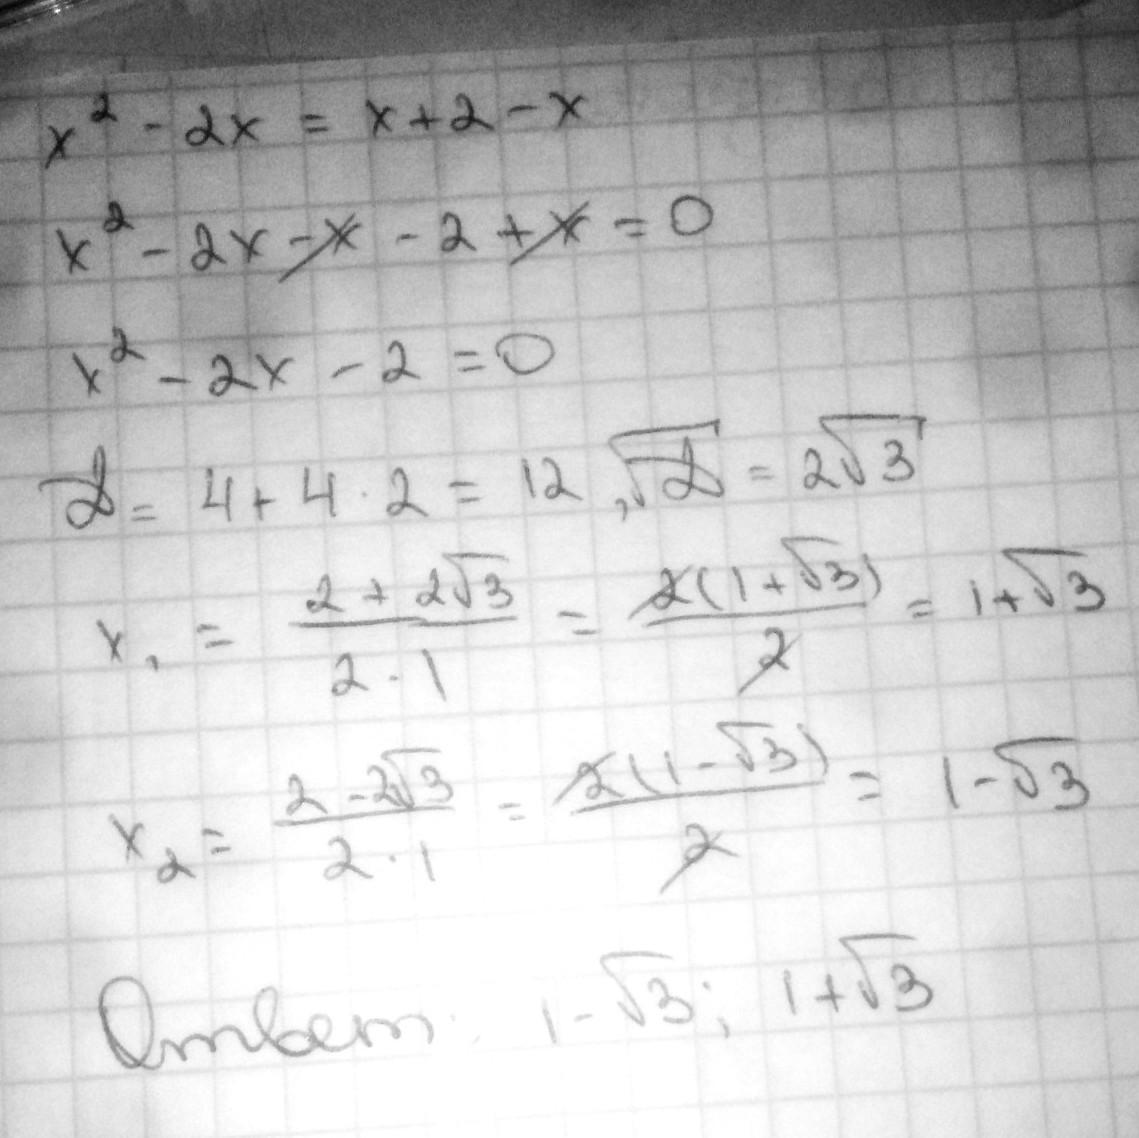 x² - 2x = x + 2 - x
x² - 2x - x - 2 + x = 0
x² - 2x - 2 = 0
D = 4 + 4 · 2 = 12, √D = 2√3
x₁ = (2 + 2√3)/(2 · 1) = 2(1 + √3)/2 = 1 + √3
x₂ = (2 - 2√3)/(2 · 1) = 2(1 - √3)/2 = 1 - √3
Ответ: 1 - √3; 1 + √3